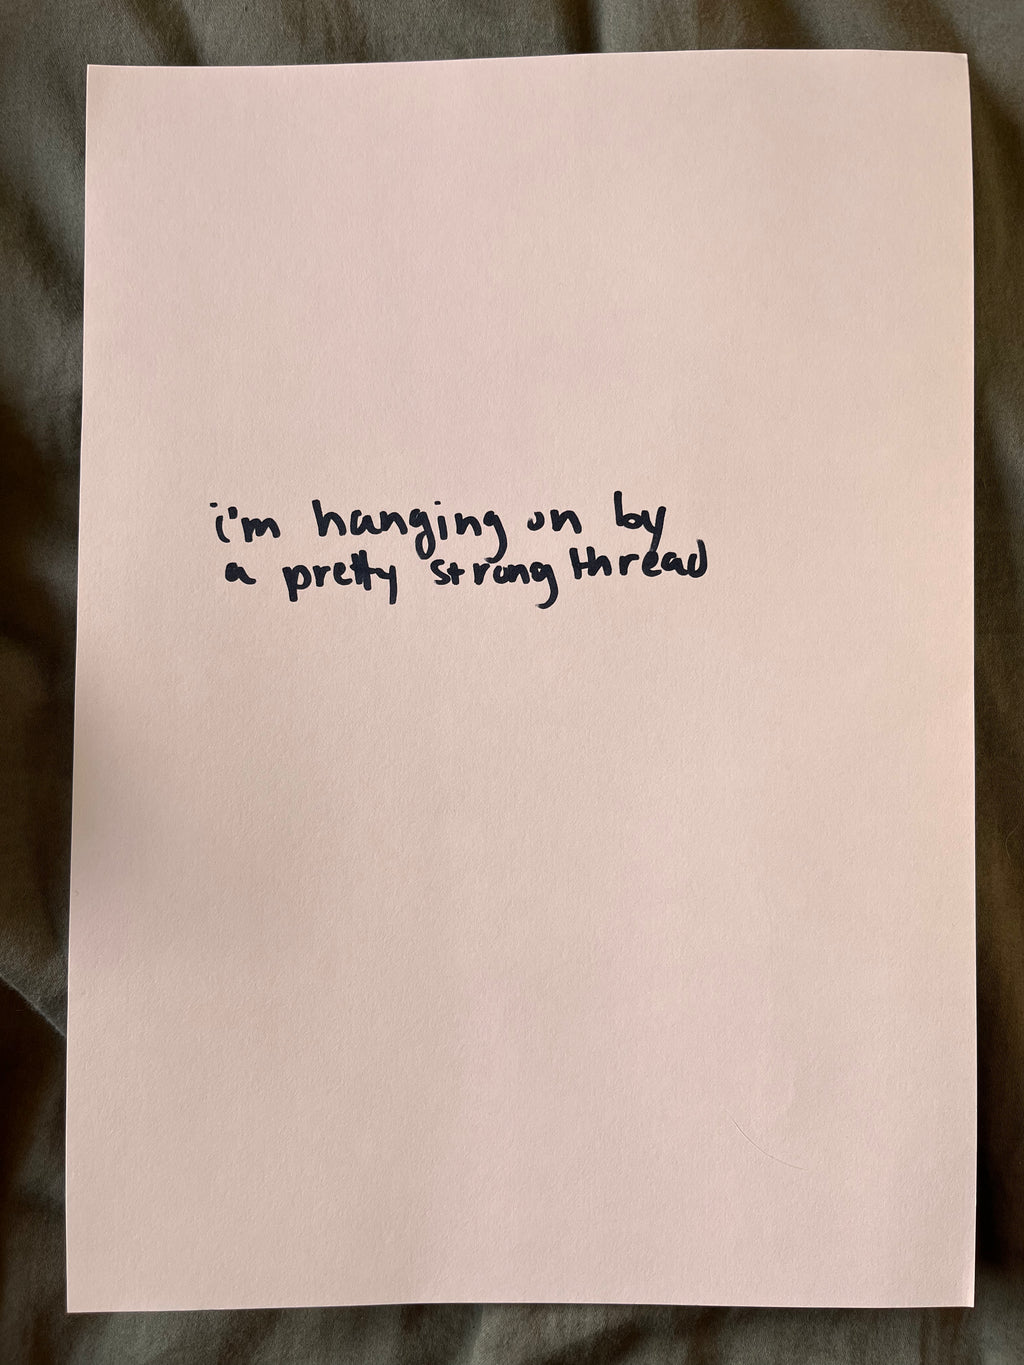 i'm hanging on by
a pretty strong thread